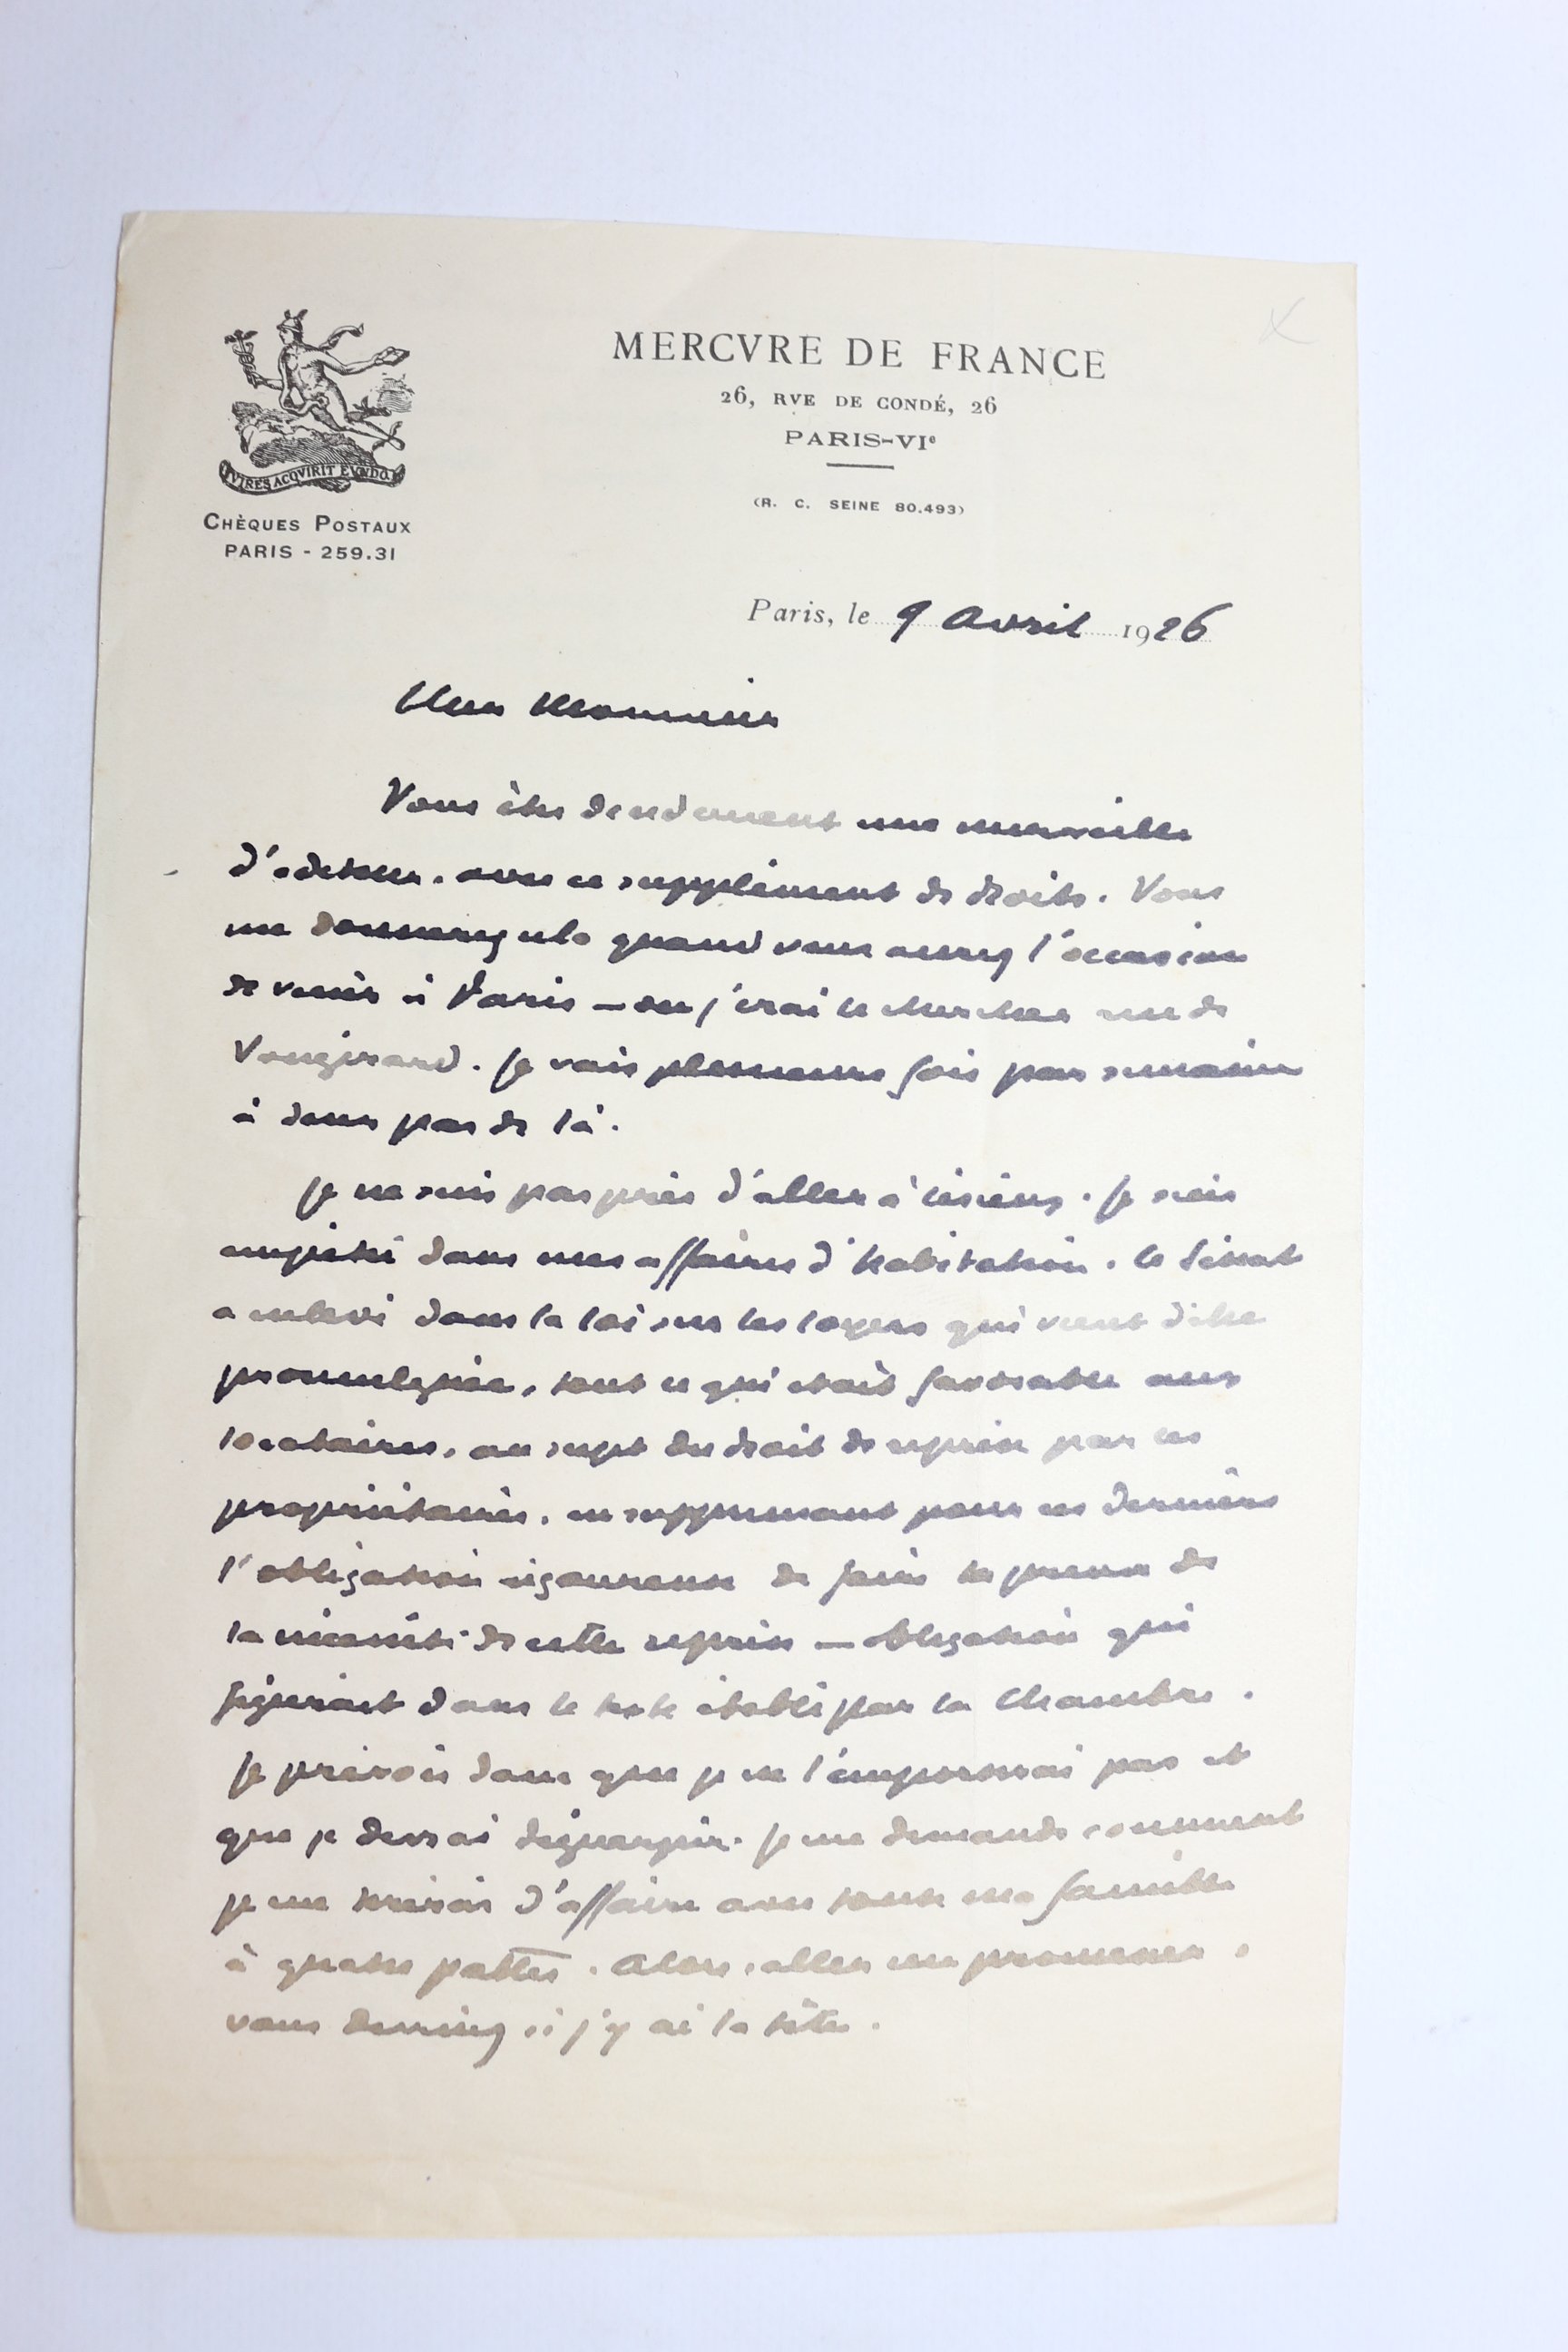 MERCVRE DE FRANCE
26, RVE DE CONDÉ, 26
PARIS-VIe
(R. C. SEINE 80.493)
VIRES ACQVIRIT EVNDO
CHÈQUES POSTAUX
PARIS - 259.31
Paris, le 9 Avril 1926
Cher Monsieur
Vous êtes décidément une merveille
d'éditeur, avec ce supplément de droits. Vous
me donnerez cela quand vous aurez l'occasion
de venir à Paris — ou j'irai le chercher rue de
Vaugirard. Je vais plusieurs fois par semaine
à deux pas de là.
Je ne suis pas près d'aller à Lisieux. Je suis
empêtré dans mes affaires d'habitation. Le Sénat
a enlevé dans la loi sur les loyers qui vient d'être
promulguée, tout ce qui était favorable aux
locataires, au sujet du droit de reprise par les
propriétaires, en supprimant pour ces derniers
l'obligation rigoureuse de faire la preuve de
la nécessité de cette reprise — obligation qui
figurait dans le texte établi par la Chambre.
Je prévois donc que je ne l'emporterai pas et
que je devrai déguerpir. Je me demande comment
je me tirerai d'affaire avec toute ma famille
à quatre pattes. Alors, aller me promener,
vous devinez si j'y ai la tête.